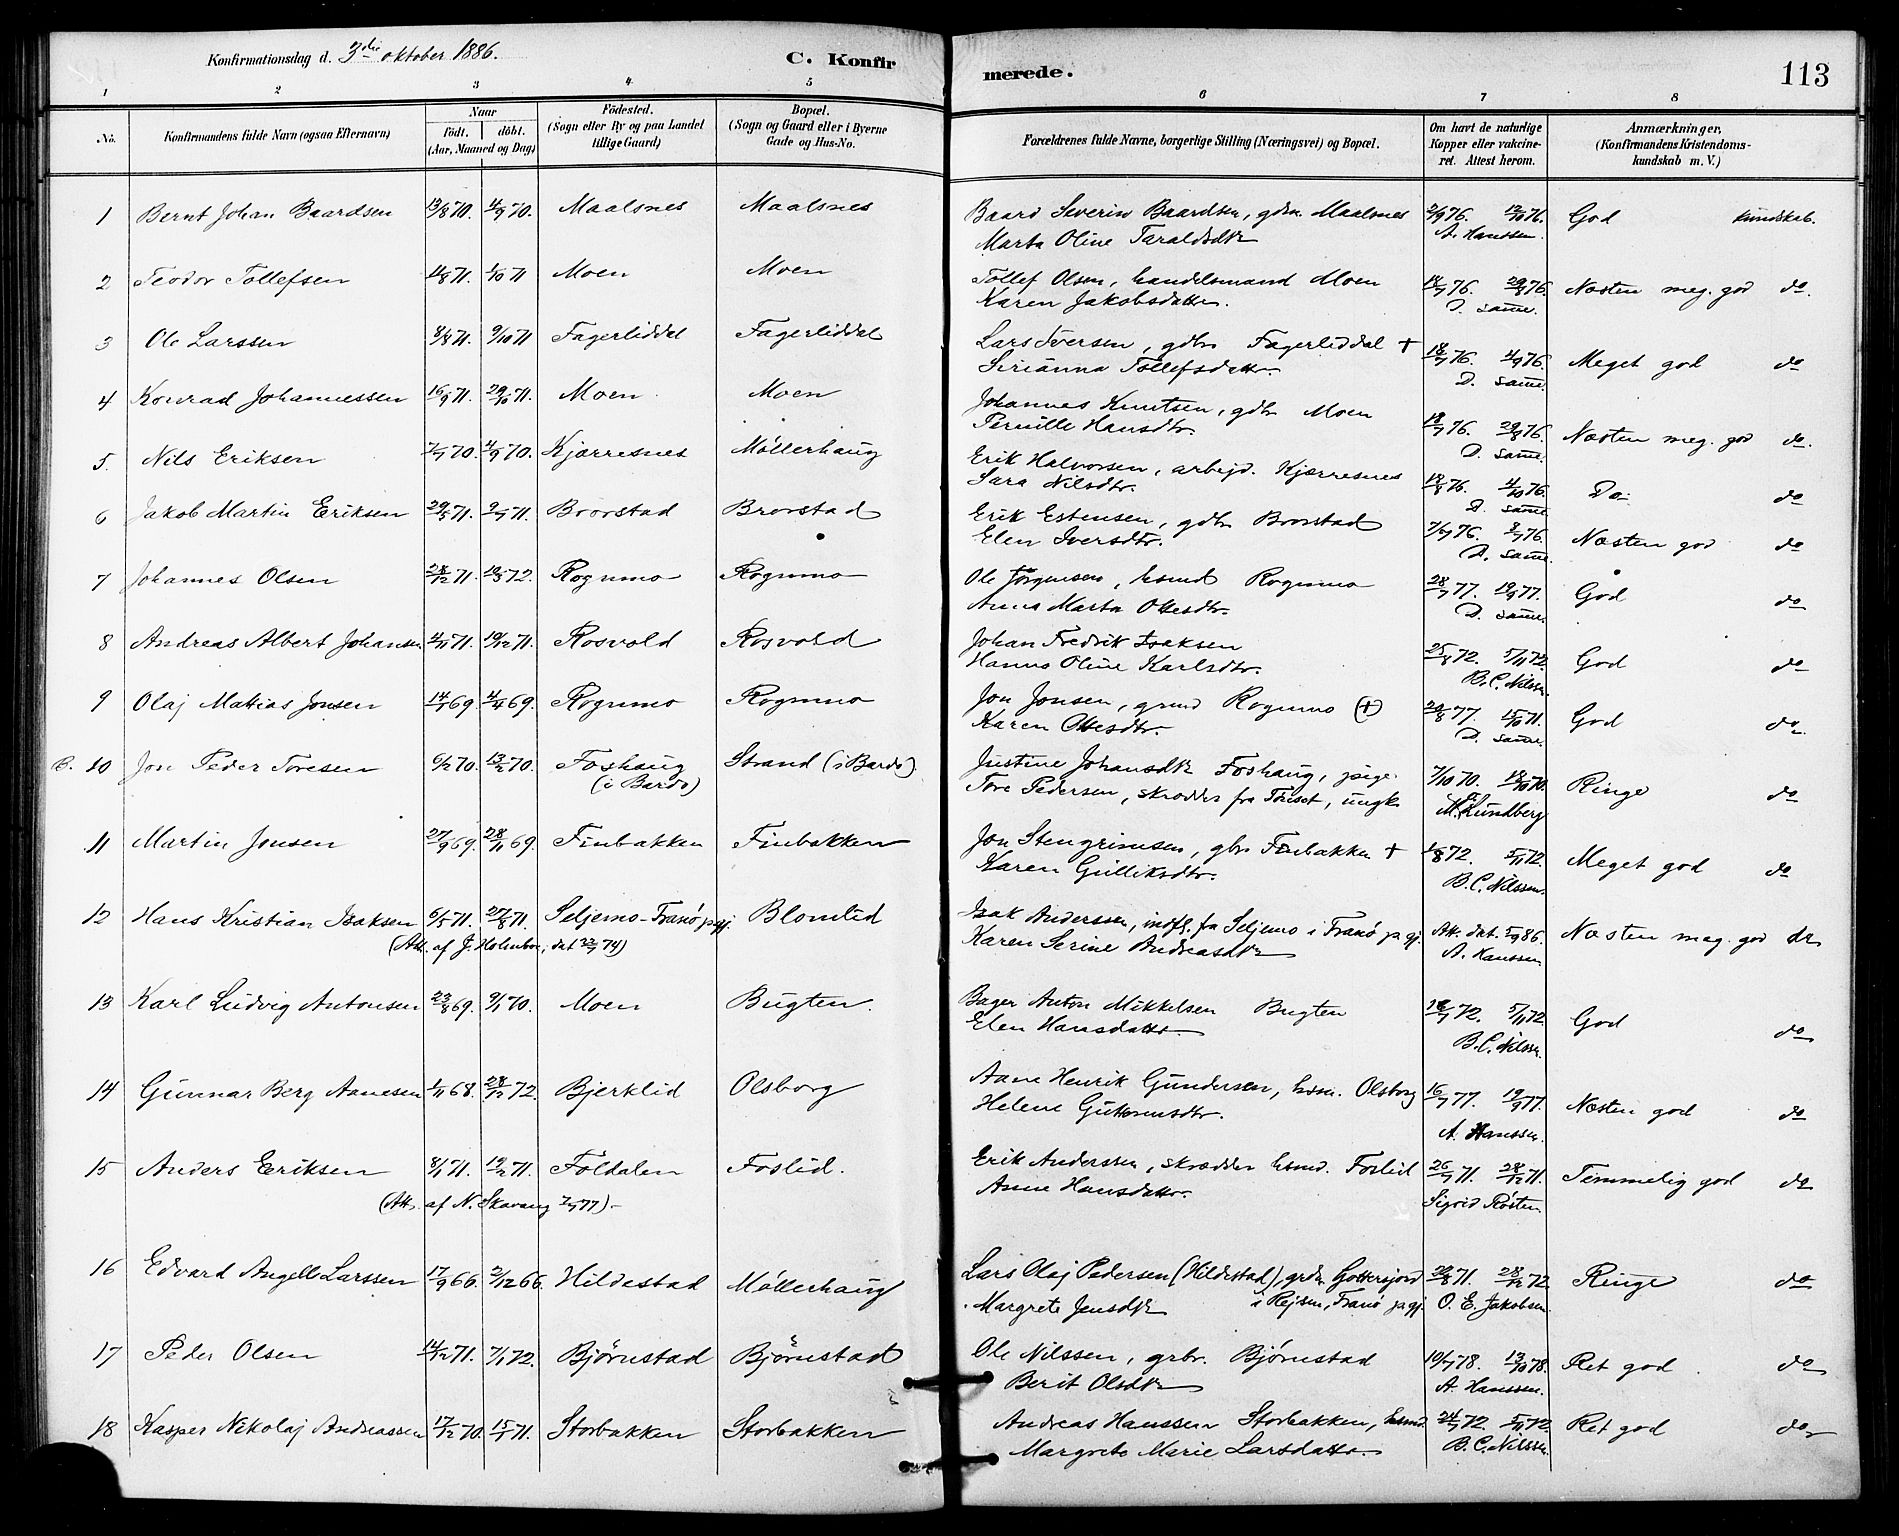 Konfirmationsdag d. 3die oktober 1886. C. Konfirmerede. 113
1 2 3 4 5 6 7 8
No. Konfirmandens fulde Navn (ogsaa Efternavn) Naar født. døbt. (Aar, Maaned og Dag) Fødested. (Sogn eller By og paa Landet tillige Gaard) Bopæl. (Sogn og Gaard eller i Byerne Gade og Hus-No. Forældrenes fulde Navne, borgerlige Stilling (Næringsvei) og Bopæl. Om havt de naturlige Kopper eller vakcineret. Attest herom. Anmærkninger, (Konfirmandens Kristendomskundskab m. V.)
1 Bernt Johan Baardsen 13/8 70. 4/9 70. Maalsnes Maalsnes Baard Severin Baardsen, gdbr. Maalsnes 2/9 76. 12/10 76. God kundskab.
Marta Oline Taraldsdtr A. Hanssen.
2 Teodor Tollefsen 4/8 71. 1/10 71 Moen Moen Tollef Olsen, handelsmand Moen 18/7 76. 29/8 76. Næsten meg. god do.
Karen Jakobsdatter. D. samme.
3 Ole Larssen 8/8 71. 9/10 71 Fagerliddal Fagerliddal Lars Iversen, gdbr Fagerliddal + 18/7 76. 4/9 76. Meget god do
Sirianna Tollefsdatter. D. samme.
4 Konrad Johannessen 16/9 71. 29/10 71. Moen Moen Johannes Knutsen, gdbr Moen 18/7 76. 29/8 76. Næsten meg. god do.
Pernille Hansdtr. D. samme.
5. Nils Eriksen 7/7 70. 4/9 70. Kjærresnes Møllerhaug Erik Halvorsen, arbejd. Kjærresnes 18/8 76. 4/10 76. Do. do
Sara Nilsdtr. D. samme
6 Jakob Martin Eriksen 29/5 71. 2/7 71. Brorstad Brorstad Erik Estensen, gdbr Brorstad 7/6 76. 2/7 76. Næsten god do
Elen Iversdtr. D. samme.
7 Johannes Olsen 28/12 71. 12/5 72. Rognmo Rognmo Ole Jørgensen, husmd Rognmo 28/7 77. 19/9 77. God do
Anna Marta Ottesdtr. D. samme.
8 Andreas Albert Johansen 4/11 71. 19/12 71. Rosvold Rosvold Johan Fredrik Isaksen 25/8 72. 5/11 72. God do
Hanna Oline Karlsdtr. B. C. Nilssen.
9 Olaj Matias Jonsen 14/1 69. 4/4 69. Rognmo Rognmo Jon Jonsen, grmd Rognmo (+) 29/8 77. 15/10 71. God do.
Karen Ottesdtr. D. samme.
10 Jon Peder Toresen 6/2 70. 13/2 70. Foshaug Strand (i Bardo) Justine Johansdtr Foshaug, pige. 7/10 70. 18/10 70. Ringe do
(i Bardo) Tore Pedersen, skrædder fra Tønset, ungk. M. Lundberg
11 Martin Jonsen 27/9 69. 28/11 69. Finbakken Finbakken Jon Stengrimsen, gbr Finbakken + 1/8 72. 5/11 72. Meget god do
Karen Gulliksdtr. B. C. Nilssen.
12 Hans Kristian Isaksen 6/5 71. 27/8 71. Seljemo-Tranø pgj. Blomlid Isak Anderssen, indfl. fra Seljemo i Tranø pgj. Att. dat. 5/9 86. Næsten meg. god do
(Att. af J. Holmboe, dat 22/7 74) Karen Serine Andreasdtr A. Hanssen.
13 Karl Ludvig Antonsen 23/8 69. 9/1 70. Moen Bugten. Bager Anton Mikkelsen Bugten 18/7 72. 5/11 72. God do
Elen Hansdatter. B. C. Nilssen.
14 Gunnar Berg Aanesen 1/11 68. 28/12 72. Bjerklid Olsborg Aane Henrik Gundersen, husm. Olsborg 16/7 77. 19/9 77. Næsten god do
Helene Guttormsdtr. A. Hanssen.
15 Anders Eriksen 8/1 71. 19/2 71. Foldalen Foslid. Erik Anderssen, skrædder husmd. Foslid 26/7 71. 28/12 71. Temmelig god do
(Att. af N. Skavang 7/7 77). Anne Hansdatter. Sigrid Rosten.
16 Edvard Angell Larssen 17/9 66. 2/12 66. Hildestad Møllerhaug Lars Olaj Pedersen (Hildestad), grdbr. Gottersjord 20/8 71. 28/12 72. Ringe do
Margrete Jensdtr i Rejsen, Tranø pgj. O. E. Jakobsen.
17 Peder Olsen 14/12 71. 7/1 72. Bjørnstad Bjørnstad Ole Nilssen, grbr. Bjørnstad 10/7 78. 13/10 78. Ret god do
Berit Olsdtr A. Hanssen.
18 Kasper Nikolaj Andreassen 17/12 70. 15/1 71. Storbakken Storbakken Andreas Hanssen Storbakken, husmd 24/7 72. 5/11 72. Ret god do
Margrete Marie Larsdatter B. C. Nilssen.